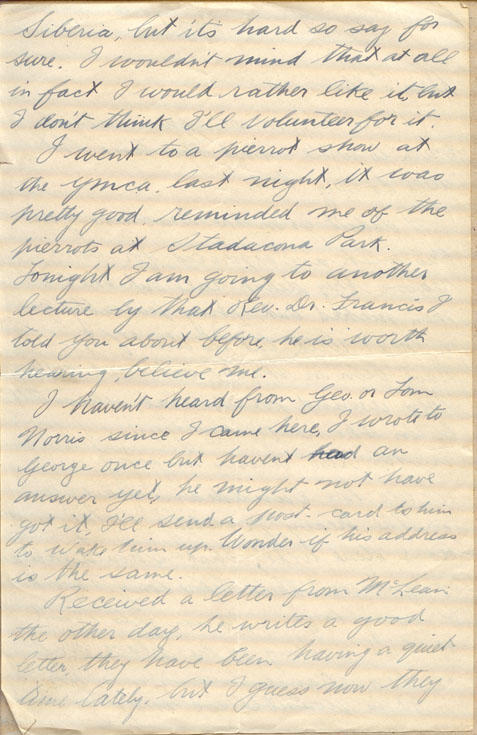 Siberia, but it's hard so say for
sure. I wouldn't mind that at all
in fact I would rather like it, but
I don't think I'll volunteer for it.
I went to a pierrot show at
the Ymca. last night, it was
pretty good. reminded me of the
pierrots at Stadacona Park.
Tonight I am going to another
lecture by that Rev. Dr. Francis I
told you about before, he is worth
hearing, believe me.
I haven't heard from Geo. or Tom
Norris since I came here, I wrote to
George once but havent had an
answer yet, he might not have
got it, I'll send a post-card to him
to wake him up. Wonder if his address
is the same.
Received a letter from McLean
the other day, he writes a good
letter, they have been having a quiet
time lately. but I guess now they